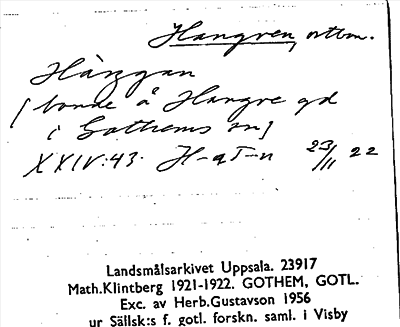 Hangren, ottm.
Hàŋgan
[bonde å Hangre gd
i Gothems sn]
XXIV:43. H-a T-n 23/11 22
Landsmålsarkivet Uppsala. 23917
Math.Klintberg 1921-1922. GOTHEM, GOTL.
Exc. av Herb.Gustavson 1956
ur Sällsk:s f. gotl. forskn. saml. i Visby